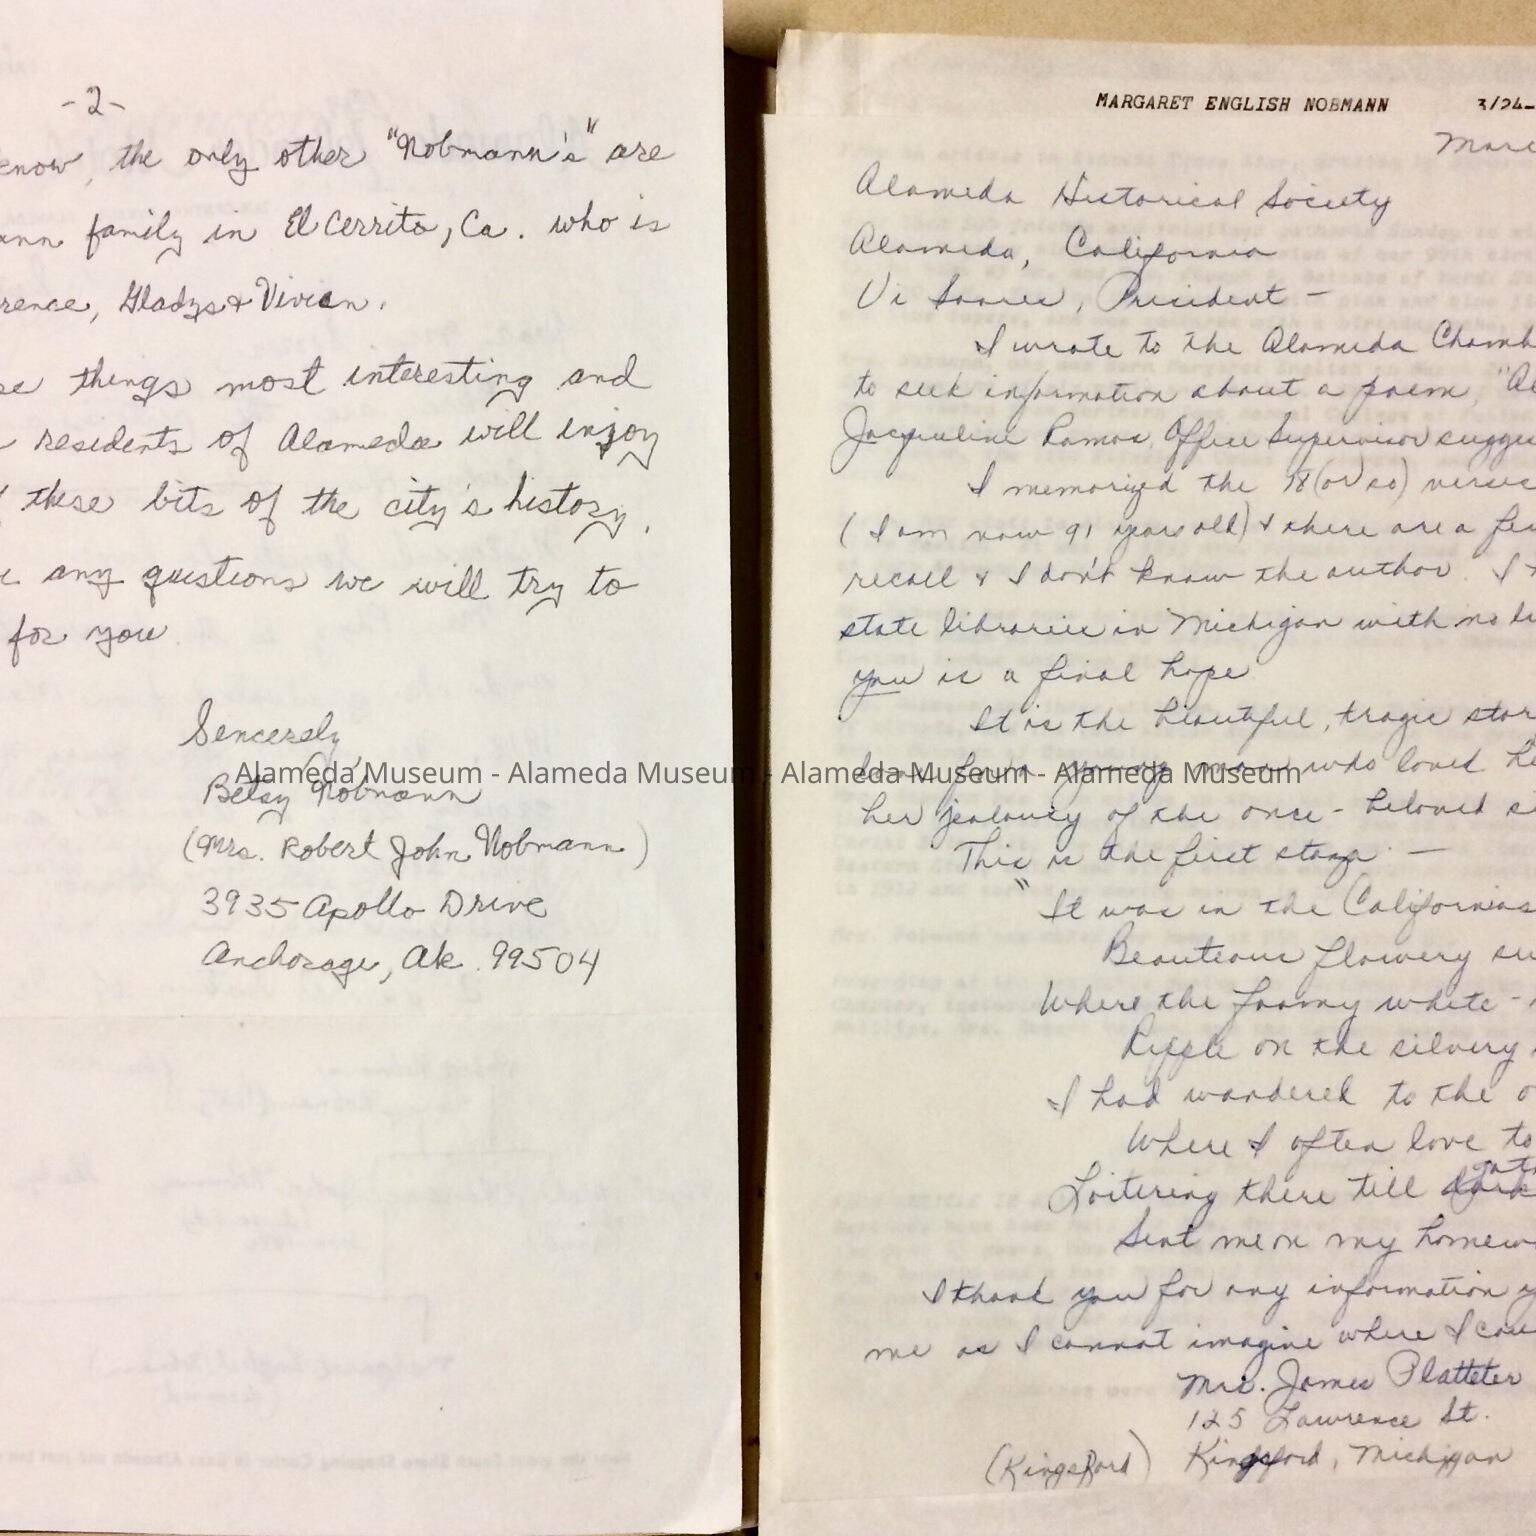 -2-
know, the only other "Nobmann's" are
ann family in El Cerrito, Ca. who is
rence, Gladys & Vivian.
se things most interesting and
residents of Alameda will enjoy
these bits of the city's history.
any questions we will try to
for you
Sencerely,
Betsy Nobmann
(Mrs. Robert John Nobmann)
3935 Apollo Drive
Anchorage, Ak. 99504
MARGARET ENGLISH NOBMANN 3/24-
Marc
Alameda Historical Society
Alameda, California
Vi Soares, President -
I wrote to the Alameda Chamb
to seek information about a poem, "Al
Jacqueline Ramos, Office Supervisor sugges
I memorized the 18 (or so) verses
(I am now 91 years old) & there are a few
recall & I don't know the author. I
state libraries in Michigan with no lu
you is a final hope
It is the beautiful, tragic stor
love for a young man who loved he
her jealousy of the once-beloved si
This is the first stanza: -
"It was in the Californias
Beauteous flowery su
Where the foamy white-
Ripple on the silvery
I had wandered to the o
Where I often love to
Loitering there till dark
Sent me on my homew
I thank you for any information y
me as I cannot imagine where I cou
Mrs. James Platteter
125 Lawrence St.
(Kingsford) Kingsford, Michigan
Alameda Museum - Alameda Museum - Alameda Museum - Alameda Museum